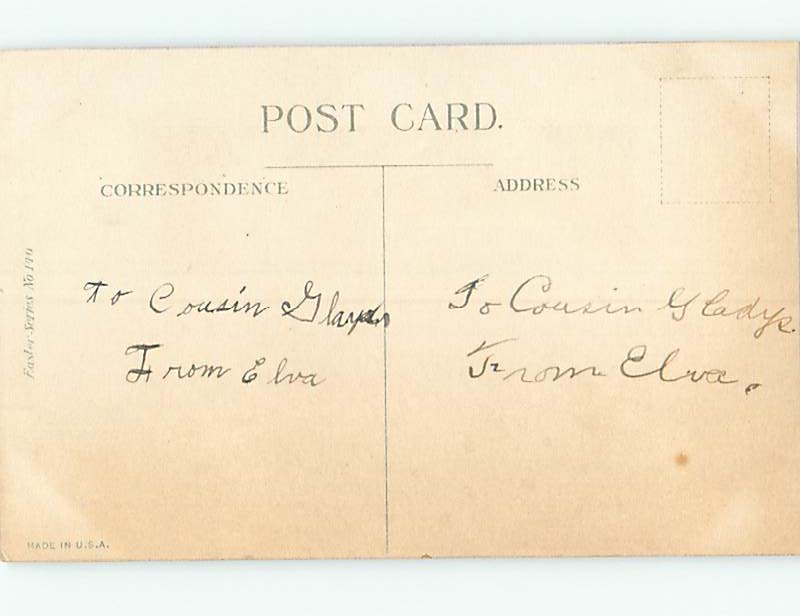 POST CARD.
CORRESPONDENCE
ADDRESS
Easter Series No 140
To Cousin Gladys
From Elva
To Cousin Gladys.
From Elva.
MADE IN U.S.A.